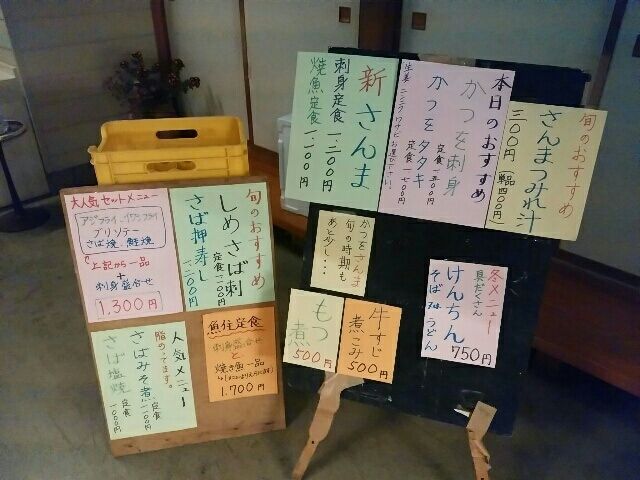 人気セットメニュー
アジフライ、イワシフライ
ブリソテー
さば焼、鮭焼
上記から一品
+
刺身盛合せ
1.300円
旬のおすすめ
しめさば刺
定食一,一〇〇円
さば押寿し
一,二〇〇円
人気メニュー
脂のってます。
さばみそ煮
定食
一,一〇〇円
さば塩焼
定食
一,一〇〇円
魚住定食
刺身盛合せ
と
焼き魚一品
1.700円
新さんま
刺身定食
一,二〇〇円
焼魚定食
一,一〇〇円
本日のおすすめ
かつを刺身
定食
かつをタタキ
定食
旬のおすすめ
さんまつみれ汁
三〇〇円
かつをさんま
旬の時期も
あと少し…
もつ煮
500円
牛すじ
煮こみ
500円
冬メニュー
具だくさん
けんちん
そば
うどん
750円